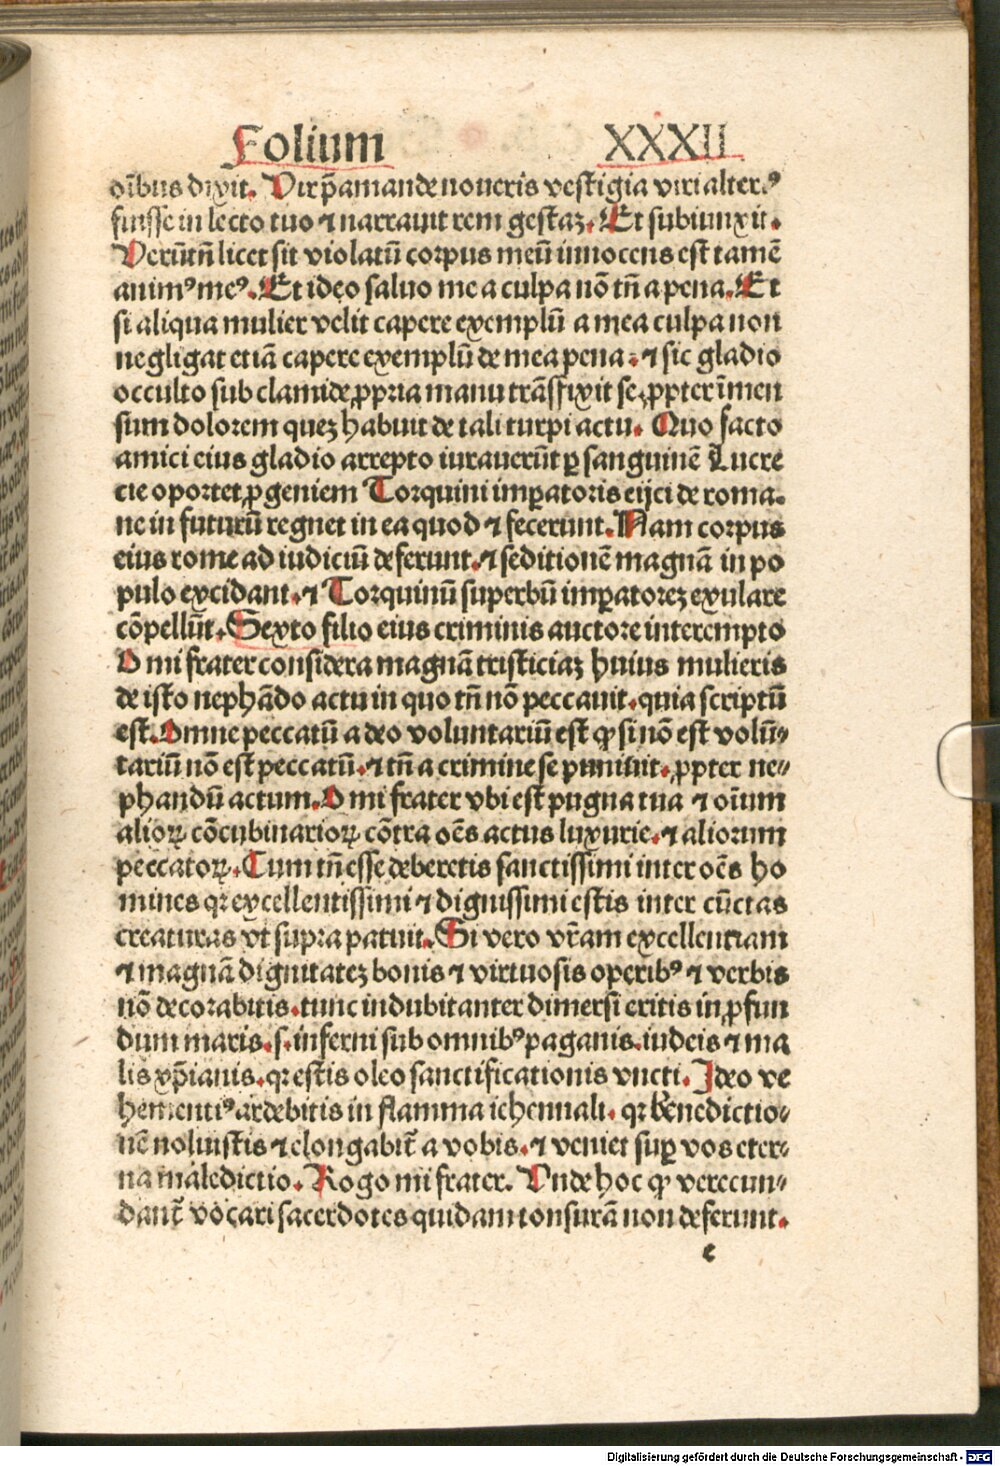 Folium XXXII
oībus dixit. Vir p̄amande noueris vestigia viri alterꝰ
fuisse in lecto tuo ⁊ narrauit rem gestaꝫ. Et subiunxit.
Verūtn̄ licet sit violatū corpus meū innocens est tamē
animꝰ meꝰ. Et ideo saluo me a culpa nō tn̄ a pena. Et
si aliqua mulier velit capere exemplū a mea culpa non
negligat etiā capere exemplū de mea pena: ⁊ sic gladio
occulto sub clamide ꝓpria manu trāsfixit se ꝓpter īmen
sum dolorem queꝫ habuit de tali turpi actu. Quo facto
amici eius gladio arrepto iurauerūt ꝑ sanguinē Lucre
cie oportet ꝓgeniem Torquini imꝑatoris eijci de roma.
ne in futurū regnet in ea quod ⁊ fecerunt. Nam corpus
eius rome ad iudiciū deferunt. ⁊ seditionē magnā in po
pulo excidant. ⁊ Torquinū superbū imꝑatoreꝫ exulare
cōpellūt. Sexto filio eius criminis auctore interempto
O mi frater considera magnā tristiciaꝫ huius mulieris
de isto nephādo actu in quo tn̄ nō peccauit. quia scriptū
est. Omne peccatū adeo voluntariū est ꝙ si nō est volū-
tariū nō est peccatū. ⁊ tn̄ a crimine se puniuit. ꝓpter ne-
phandū actum. O mi frater vbi est pugna tua ⁊ oīum
alioꝝ cōcubinarioꝝ cōtra oēs actus luxurie. ⁊ aliorum
peccatoꝝ. Cum tn̄ esse deberetis sanctissimi inter oēs ho
mines qꝛ excellentissimi ⁊ dignissimi estis inter cūctas
creaturas vt supra patuit. Si vero vr̄am excellentiam
⁊ magnā dignitateꝫ bonis ⁊ virtuosis operibꝰ ⁊ verbis
nō decorabitis. tunc indubitanter dimersi eritis in ꝓfun
dum maris. s. inferni sub omnibꝰ paganis. iudeis ⁊ ma
lis xp̄ianis. qꝛ estis oleo sanctificationis vncti. Ideo ve
hementiꝰ ardebitis in flamma iehennali. qꝛ benedictio-
nē noluistis ⁊ elongabit̄ a vobis. ⁊ veniet suꝑ vos eter-
na maledictio. Rogo mi frater. Vnde hoc ꝙ verecun-
dant̄ vocari sacerdotes quidam tonsurā non deferunt.
e
Digitalisierung gefördert durch die Deutsche Forschungsgemeinschaft - DFG